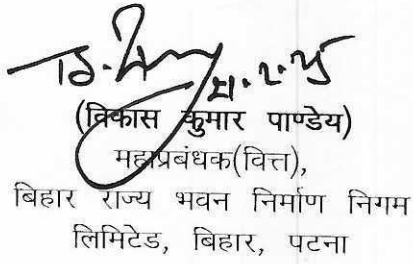 (विकास कुमार पाण्डेय)
महाप्रबंधक(वित्त),
बिहार राज्य भवन निर्माण निगम
लिमिटेड, बिहार, पटना